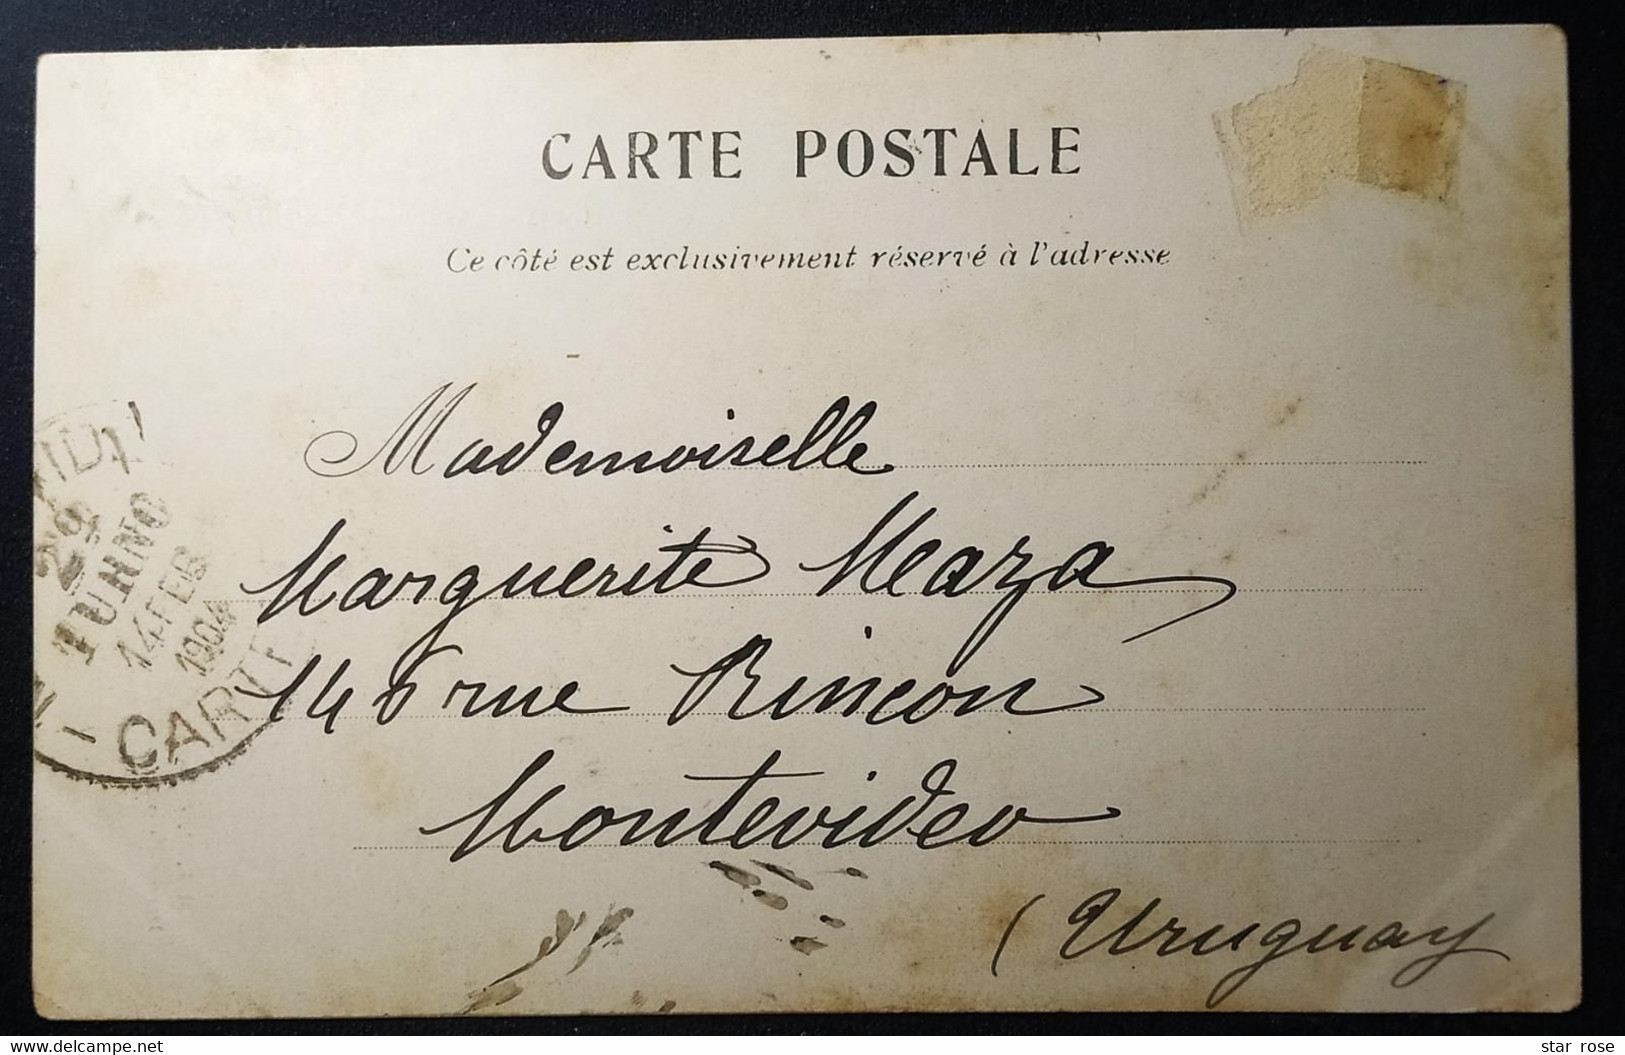 CARTE POSTALE
Ce côté est exclusivement réservé à l'adresse
Mademoiselle
Marguerite Maza
146 rue Rincon
Montevideo
(Uruguay
2º
TURNO
14 FEB
1904
delcampe.net
star rose